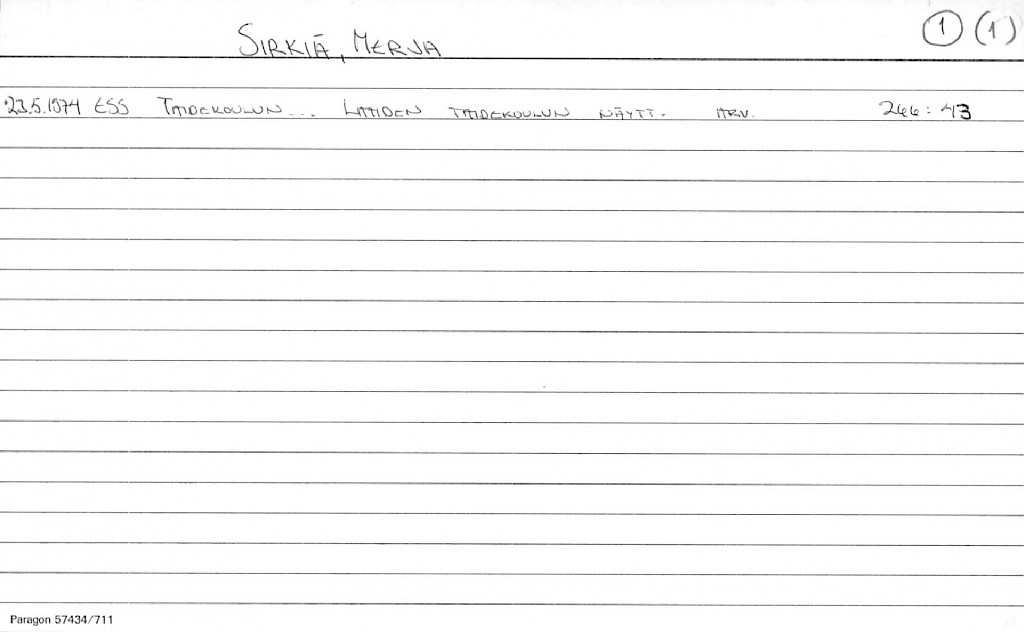 SIRKIÄ, MERJA 1 (1)
23.5.1974 ESS TAIDEKOULUN... LAHDEN TAIDEKOULUN NÄYTT. ARV. 266: 43
Paragon 57434/711